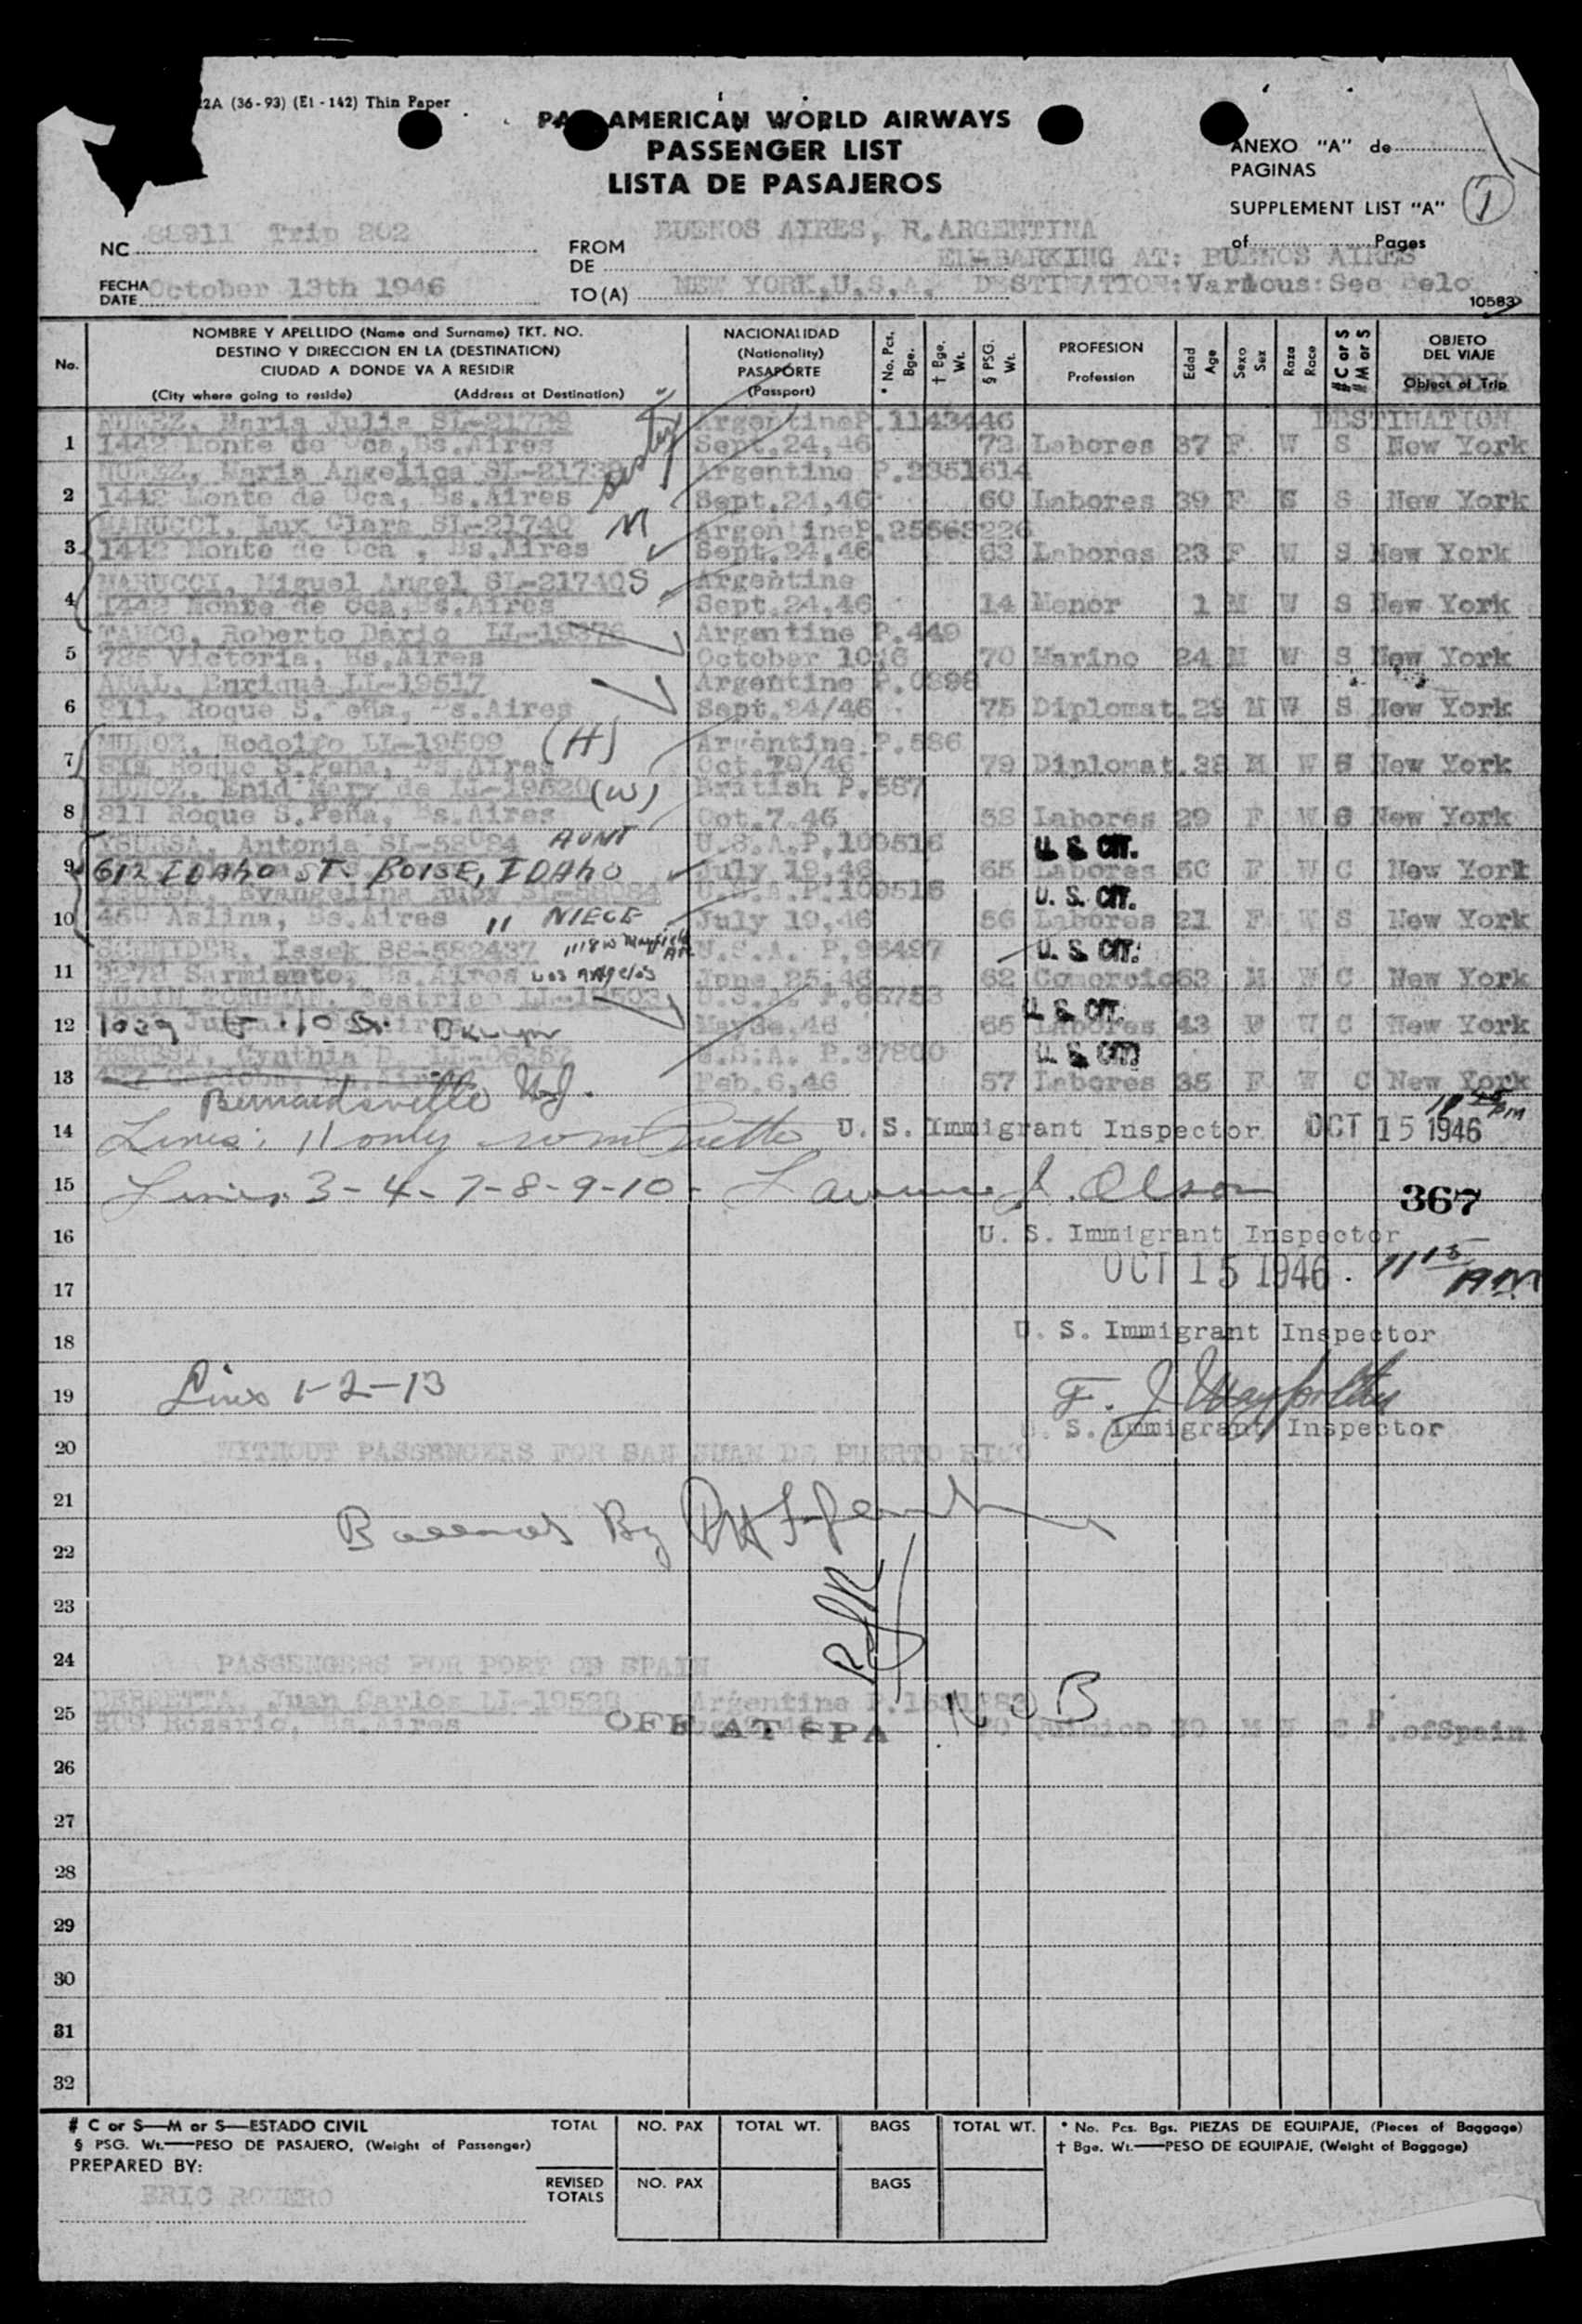 22A (36-93) (E1-142) Thin Paper
AMERICAN WORLD AIRWAYS
PASSENGER LIST
LISTA DE PASAJEROS
ANEXO "A" de
PAGINAS
SUPPLEMENT LIST "A" 1
of Pages
NC 88911 Trip 202
FROM
DE
BUENOS AIRES, R.ARGENTINA
EMBARKING AT: BUENOS AIRES
FECHA
DATE October 13th 1946
TO (A) NEW YORK, U.S.A. DESTINATION: Various: See Belo
10583
No.
NOMBRE Y APELLIDO (Name and Surname) TKT. NO.
DESTINO Y DIRECCION EN LA (DESTINATION)
CIUDAD A DONDE VA A RESIDIR
(City where going to reside) (Address at Destination)
NACIONALIDAD
(Nationality)
PASAPORTE
(Passport)
* No. Pcs. Bge.
† Bge. Wt.
§ PSG. Wt.
PROFESION
Profession
Edad
Age
Sexo
Sex
Raza
Race
# C or S
# M or S
OBJETO
DEL VIAJE
Object of Trip
DESTINATION
NUÑEZ, Maria Julia SL-21739 Argentine P.1143446
1 1442 Monte de Oca, Bs.Aires Sept.24,46 72 Labores 37 F W S New York
NUÑEZ, Maria Angelica SL-21738 Argentine P.2351614
2 1442 Monte de Oca, Bs.Aires Sept.24,46 60 Labores 39 F S New York
MARUCCI, Lux Clara SL-21740 M Argentine P.25563226
3 1442 Monte de Oca, Bs.Aires Sept.24,46 63 Labores 23 F W S New York
MARUCCI, Miguel Angel SL-21740 S Argentine
4 1442 Monte de Oca, Bs.Aires Sept.24,46 14 Menor 1 M W S New York
Roberto Dario LL-19376 Argentine P.449
5 785 Victoria, Bs.Aires October 10 46 70 Marino 24 M W S New York
Enrique LL-19517 Argentine P.0898
6 811, Roque S.Peña, Bs.Aires Sept.24/46 75 Diplomat. 29 M W S New York
MUÑOZ, Rodolfo LL-19509 (H) Argentine P.586
7 Roque S.Peña, Bs.Aires 79 Diplomat. 38 M W S New York
MUÑOZ, Enid Mary de LL-19520 (W) British P.587
8 811 Roque S.Peña, Bs.Aires Oct.7,46 58 Labores 29 F W New York
YSURSA, Antonia SL-58084 AUNT U.S.A. P.109516 U. S. CIT.
9 612 IDAHO ST. BOISE, IDAHO July 19,46 65 Labores F W C New York
YSURSA, Evangeline Ruby SL-58084 U.S.A. P.109516 U. S. CIT.
10 450 Aslina, Bs.Aires " NIECE July 19,46 56 Labores 21 F W S New York
SCHNIDER, Issek SS-582437 U.S.A. P.96497 U. S. CIT.
11 3278 Sarmiento, Bs.Aires Los Angeles June 25,46 62 Comercio 63 M W C New York
Beatrice LL-19503 U.S.A. P.66753 U. S. CIT.
12 1029 E. 10 St. 46 65 Labores 43 F W C New York
Cynthia D LL-06357 U.S.A. P.37800 U. S. CIT.
13 427 Cordoba, Bs.Aires Feb.6,46 57 Labores 35 F W C New York
Bernardsville N.J.
14 Lines: 11 only U. S. Immigrant Inspector OCT 15 1946 PM
15 Lines 3-4-7-8-9-10- Lawrence J. Olson 367
16 U. S. Immigrant Inspector
17 OCT 15 1946 11 15 AM
18 U. S. Immigrant Inspector
19 Lines 1-2-13 F. J.
U. S. Immigrant Inspector
20 WITHOUT PASSENGERS FOR SAN JUAN DE PUERTO RICO
21
By
22
23
24 PASSENGERS FOR PORT OF SPAIN
Juan Carlos LL-19528 Argentine
25 809 Rosario, Bs.Aires OFF AT SPA N O B Quimico 39 M W P.ofSpain
26
27
28
29
30
31
32
# C or S—M or S—ESTADO CIVIL
§ PSG. Wt.—PESO DE PASAJERO, (Weight of Passenger)
PREPARED BY:
ERIC ROMERO
TOTAL NO. PAX TOTAL WT. BAGS TOTAL WT.
REVISED
TOTALS NO. PAX BAGS
* No. Pcs. Bgs. PIEZAS DE EQUIPAJE, (Pieces of Baggage)
† Bge. Wt.—PESO DE EQUIPAJE, (Weight of Baggage)